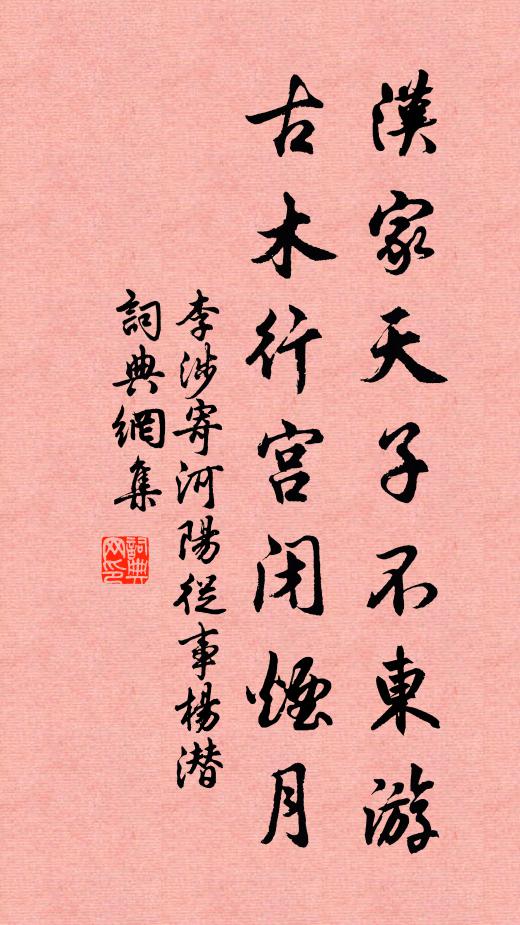 漢家天子不東游
古木行宮閉煙月
李涉寄河陽從事楊潛
詞典網集
詞典
网印